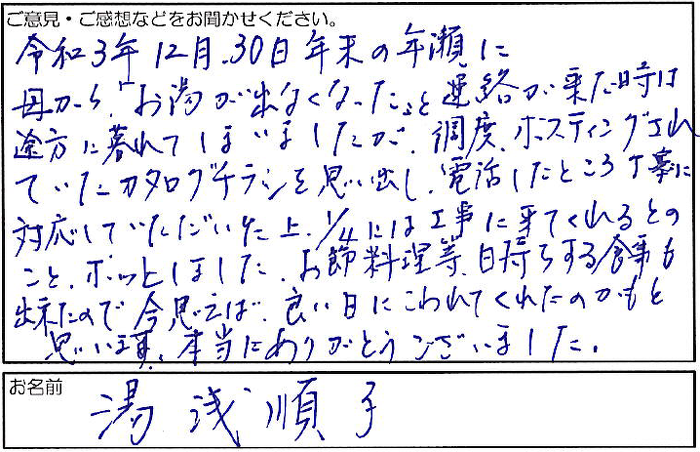 ご意見・ご感想などをお聞かせください。
令和3年12月.30日年末の年瀬に
母から、「お湯が出なくなった」と連絡が来た時は
途方に暮れてしまいましたが、調度、ポスティングされ
ていたカタログチラシを思い出し、電話したところ丁寧に
対応していただいた上、1/4には工事に来てくれるとの
こと、ホッとしました。お節料理等、日持ちする食事も
出来たので今思えば、良い日にこわれてくれたのかもと
思います。本当にありがとうございました。
お名前
湯浅順子